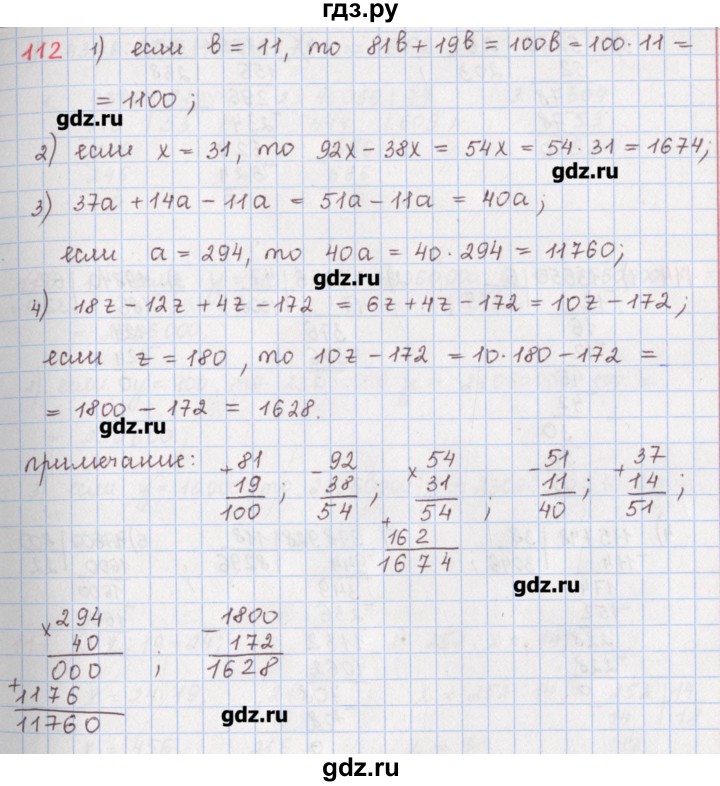 гдз.ру
112 1) если в = 11, то 81в + 19в = 100в = 100 · 11 =
= 1100;
gdz.ru
2) если x = 31, то 92x - 38x = 54x = 54 · 31 = 1674;
gdz.ru
3) 37a + 14a - 11a = 51a - 11a = 40a;
если a = 294, то 40a = 40 · 294 = 11760;
gdz.ru
4) 18z - 12z + 4z - 172 = 6z + 4z - 172 = 10z - 172;
если z = 180, то 10z - 172 = 10 · 180 - 172 =
= 1800 - 172 = 1628.
gdz.ru
примечание: + 81 - 92 × 54 - 51 + 37
19 ; 38 ; 31 ; 11 ; 14 ;
100 54 54 40 51
+ 162
1674
gdz.ru
× 294 - 1800
40 ; 172
000 1628
+ 1176
11760
gdz.ru
gdz.ru